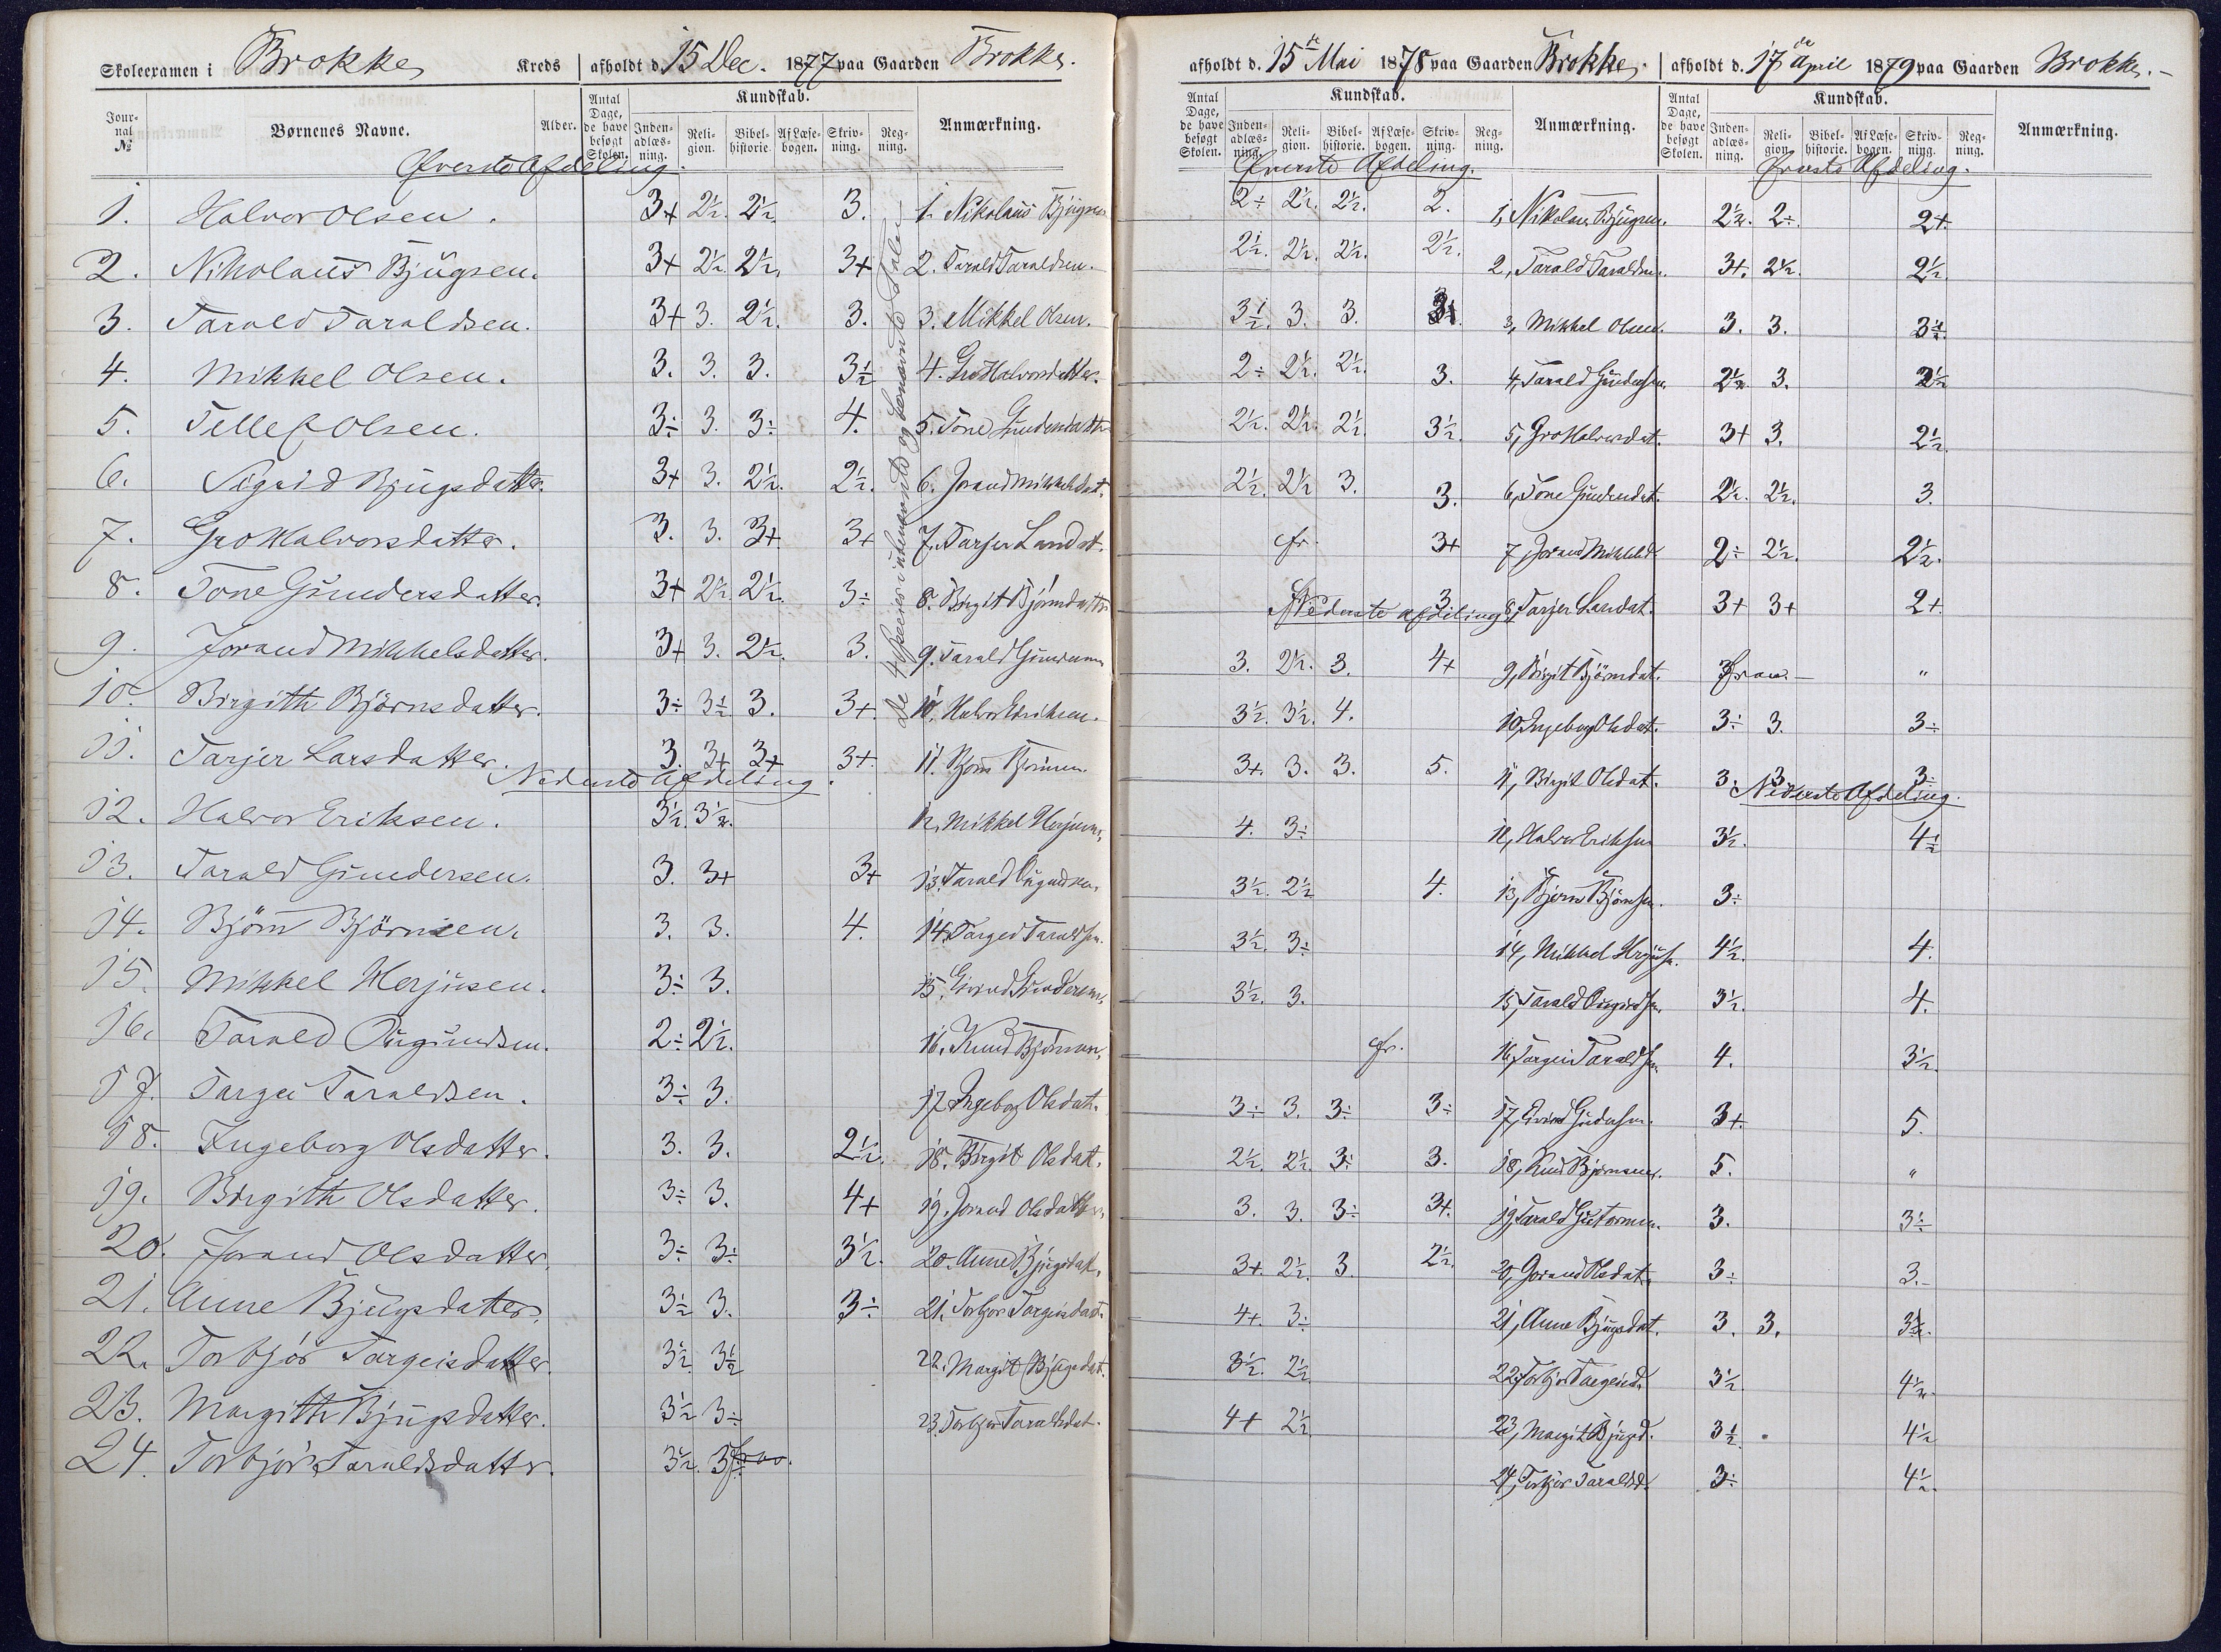 Skoleexamen i Brokke Kreds afholdt d. 15 Dec. 1877 paa Gaarden Brokke.
Jour-nal № Børnenes Navne. Alder. Antal Dage, de have besøgt Skolen. Kundskab. Inden-adlæs-ning. Reli-gion. Bibel-historie. Af Læse-bogen. Skriv-ning. Reg-ning. Anmærkning.
Øverste Afdeling.
1. Halvor Olsen. 3+ 2½. 2½ 3. 1. Nikolaus Bjugsen
2. Nikolaus Bjugsen. 3+ 2½. 2½. 3+ 2. Tarald Taraldsen.
3. Tarald Taraldsen. 3+ 3. 2½. 3. 3. Mikkel Olsen.
4. Mikkel Olsen. 3. 3. 3. 3½ 4. Gro Halvorsdatter.
5. Tellef Olsen. 3÷ 3. 3÷ 4. 5. Tone Gundersdatter
6. Sigrid Bjugsdatter. 3+ 3. 2½. 2½. 6. Jorand Mikkelsdat.
7. Gro Halvorsdatter. 3. 3. 3+ 3+ 7. Tarjer Larsdat.
8. Tone Gundersdatter. 3+ 2½. 2½. 3÷ 8. Birgit Bjørnsdatter
9. Jorand Mikkelsdatter. 3+ 3. 2½. 3. 9. Tarald Gundersen
10. Birgith Björnsdatter. 3÷ 3½ 3. 3+. 10. Halvor Eriksen.
11. Tarjer Larsdatter. 3. 3+ 3+ 3+. 11. Bjørn Bjørnsen.
Nederste Afdeling.
12. Halvor Eriksen. 3½. 3½. 12. Mikkel Herjusen.
13. Tarald Gundersen. 3. 3+ 3+ 13. Tarald Augundsen.
14. Björn Björnsen. 3. 3. 4. 14. Targei Taraldsen.
15. Mikkel Herjusen. 3÷ 3. 15. Eivind Gundersen.
16. Tarald Augundsen. 2÷ 2½. 16. Knud Bjørnsen.
17. Targei Taraldsen. 3÷ 3. 17. Ingeborg Olsdat.
18. Ingeborg Olsdatter. 3. 3. 2½. 18. Birgit Olsdat.
19. Birgith Olsdatter. 3÷ 3. 4+ 19. Jorand Olsdatter.
20. Jorand Olsdatter. 3÷ 3÷ 3½. 20. Anne Bjugsdat.
21. Anne Bjugsdatter. 3½ 3. 3÷ 21. Torbjør Targeisdat.
22. Torbjör Targeisdatter. 3½ 3½ 22. Margit Bjugsdat.
23. Margith Bjugsdatter. 3½ 3÷ 23. Torbjør Taraldsdat.
24. Torbjör Taraldsdatter. 3½. 3÷
De 4
afholdt d. 15de Mai 1878 paa Gaarden Brokke. afholdt d. 17de April 1879 paa Gaarden Brokke.
Antal Dage, de have besøgt Skolen. Kundskab. Inden-adlæs-ning. Reli-gion. Bibel-historie. Af Læse-bogen. Skriv-ning. Reg-ning. Anmærkning. Antal Dage, de have besøgt Skolen. Kundskab. Inden-adlæs-ning. Reli-gion. Bibel-historie. Af Læse-bogen. Skriv-ning. Reg-ning. Anmærkning.
Øverste Afdeling. Øverste Afdeling.
2÷ 2½. 2½. 2. 1, Nikolaus Bjugsen. 2½. 2÷. 2+.
2½. 2½. 2½. 2½. 2, Tarald Taraldsen. 3+. 2½. 2½.
3½. 3. 3. 3, Mikkel Olsen. 3. 3. 3½.
2÷ 2½. 2½. 3. 4, Tarald Gundersen. 2½. 3. 2½
2½. 2½. 2½. 3½. 5, Gro Halvorsdat. 3+ 3. 2½.
2½. 2½ 3. 3. 6, Tone Gundersdat. 2½. 2½. 3.
fr. 3+ 7, Jorand Mikkelsd. 2÷ 2½. 2½.
Nederste Afdeling 3 8, Tarjer Larsdat. 3+ 3+ 2+.
3. 2½. 3. 4+ 9, Birgit Bjørnsdat. frav. — "
3½. 3½. 4. 10, Ingeborg Olsdat. 3÷ 3. 3÷
3+. 3. 3. 5. 11, Birgit Olsdat. 3÷ 3 3÷
Nederste Afdeling.
4. 3÷ 12, Halvor Eriksen 3½. 4½
3½. 2½ 4. 13, Bjørn Bjørnsen. 3÷
3½. 3÷ 14, Mikkel Herjusn. 4½. 4.
3½. 3. 15, Tarald Augundsn. 3½. 4.
fr. 16, Targei Taraldsen 4. 3½.
3÷ 3. 3÷ 3÷ 17, Eivind Gundersen. 3+. 5.
2½. 2½. 3÷ 3. 18, Knud Bjørnsen. 5. "
3. 3. 3÷ 3+. 19, Tarald Guttormsen. 3. 3½
3+. 2½. 3. 2½. 20, Jorand Olsdat. 3÷ 3.-
4+. 3÷ 21, Anne Bjugsdat. 3. 3. 3½.
3½. 2½ 22, Torbjør Targeisd. 3½. 4½.
4+ 2½ 23, Margit Bjugsd. 3½. 4½
24, Torbjør Taraldsd. 3÷ 4½.